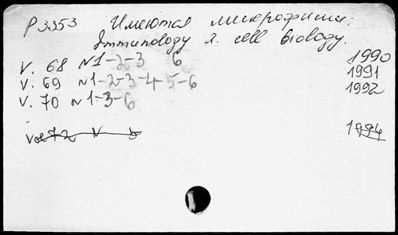 P 3353 Имеются микрофиши:
Immunology & cell biology.
V. 68 N 1-2-3 6 1990
V. 69 N 1-2-3-4-5-6 1991
V. 70 N 1-3-6 1992
Vol 72 N 5 1994